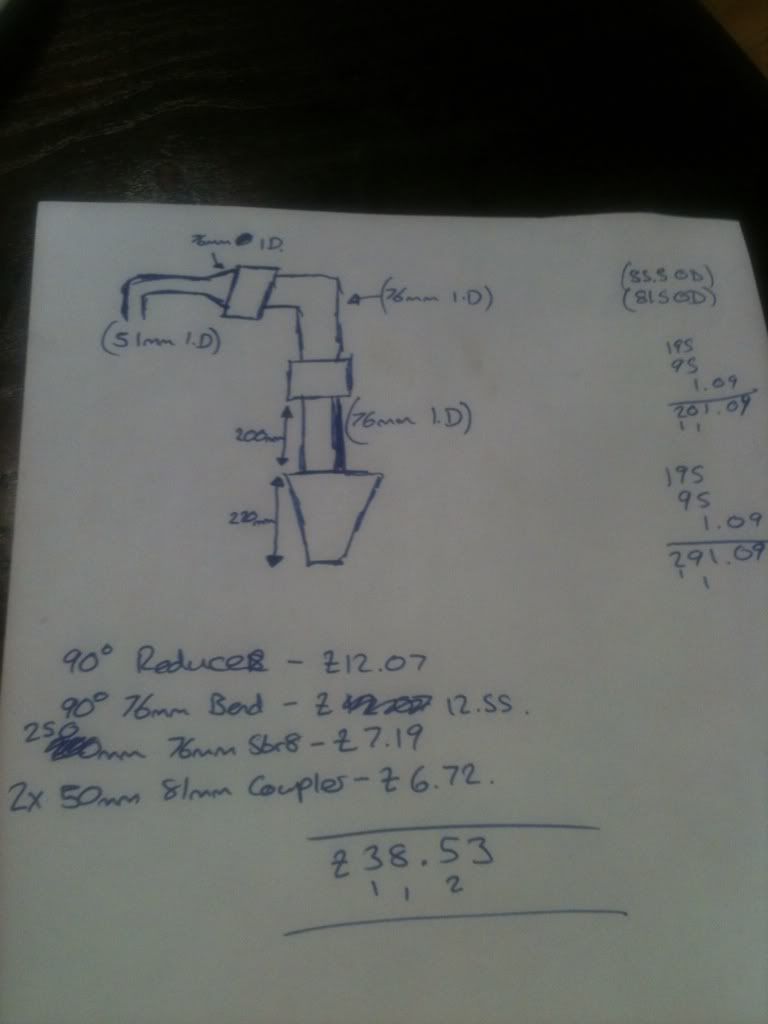 76mm I.D.
(51mm I.D)
(76mm I.D)
(76mm I.D)
200mm
220mm
(85.5 OD)
(81.5 OD)
195
95
1.09
201.09
1 1
195
95
1.09
291.09
1 1
90° Reducer - £12.07
90° 76mm Bend - £ 12.55.
250mm 76mm Str8 - £7.19
2x 50mm 81mm Coupler - £6.72.
£38.53
1 1 2